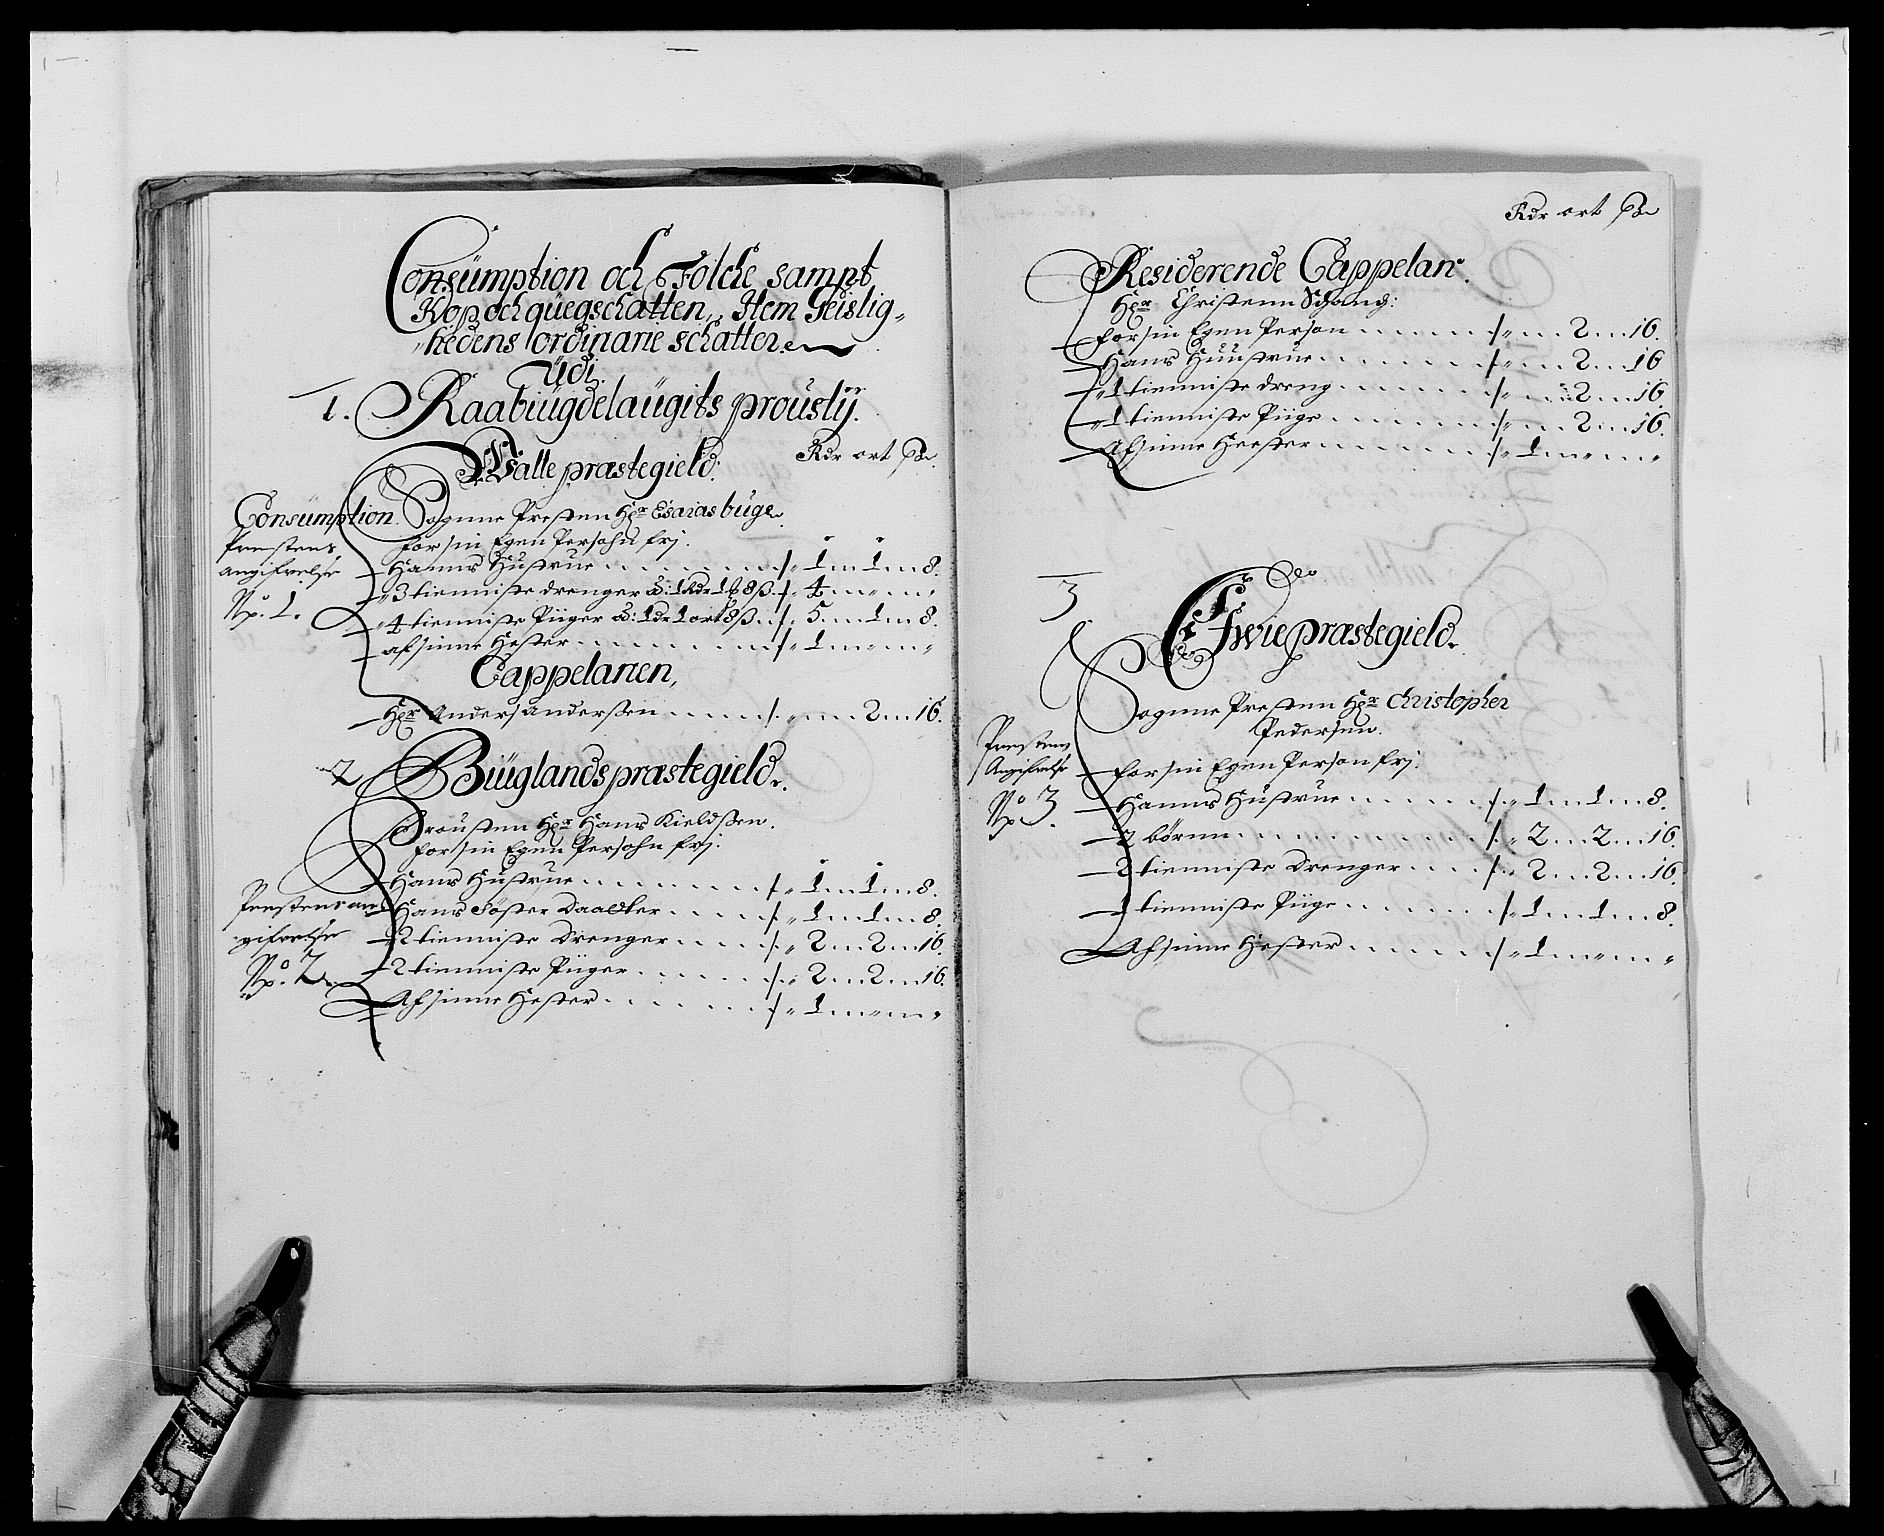 Consumption och Folche sampt
Kop och quegschatten, Item Geislig-
hedens ordinarie schatter
Udi
1. Raabiugdelaugits proustij.
Rdr ort ß
Walle præstegield:
Consumption. Sognne Presten Hr Esaias buge.
Prestens
angifvelse
No. 1.
for sin Egen Persohn frj.
Hanns Hustrue . . . 1 . 1 . 8.
3 tienniste drenger á: 1 Rdr 1 ß 8 ß . 4
4 tienniste Piiger á: 1 dr 1 ort 8 ß . 5 . 1 . 8.
af sinne Hester . . . 1
Cappelanen,
Hr Anders Anderssen . . . 2 . 16.
2 Biüglands præstegield.
Prousten Hr Hans Kieldssen.
for sin Egen Persohn frj.
Prestens an
gifvelse
No. 2.
Hans Hustrue . . . 1 . 1 . 8.
Hans Søster Daatter . . . 1 . 1 . 8.
2 tienniste Drenger . . . 2 . 2 . 16.
2 tienniste Piiger . . . 2 . 2 . 16.
Af sinne Hester . . . 1
Rdr ort ß
Residerende Cappelan.
Hr Christenn
for sin Egen Person . . . 2 . 16.
Hans Huustrue . . . 2 . 16
1 tienniste dreng . . . 2 . 16
1 tienniste Piige . . . 2 . 16.
Af sinne Heester . . . 1
3
Ewie præstegield.
Sognne Presten Hr Christopher
Pedersen.
Prestens
Angifvelse
No 3.
for sin Egen Person frj.
Hanns Hustrue . . . 1 . 1 . 8.
2 børnn . . . 2 . 2 . 16.
2 tienniste Drenger . . . 2 . 2 . 16.
1 tienniste Piige . . . 1 . 1 . 8.
Af sinne Hester . . . 1